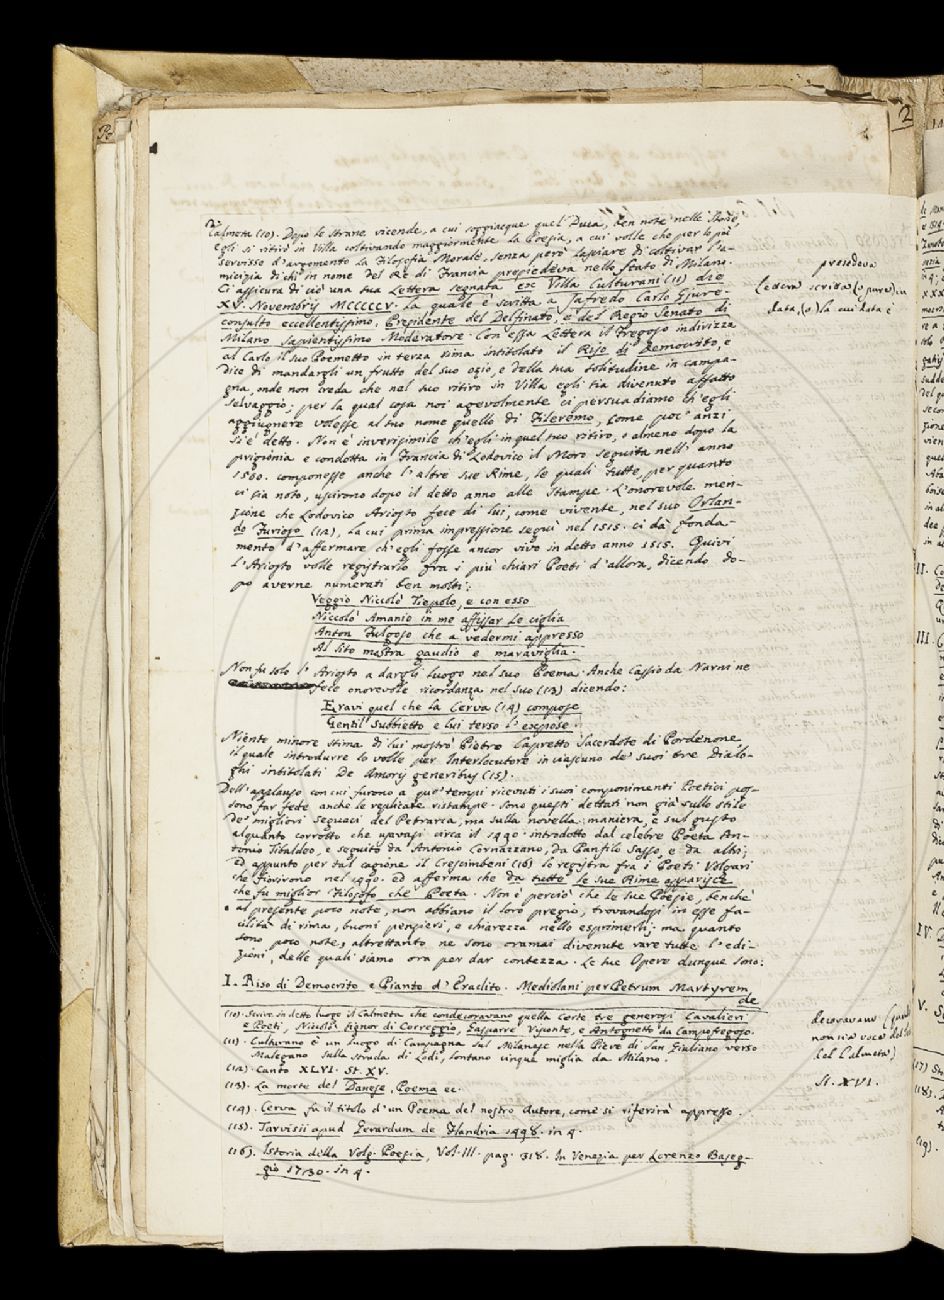 2
Calmeta (10). Dopo le strane vicende, a cui soggiacque quel Duca, ben note nelle Storie,
egli si ritirò in Villa coltivando maggiormente la Poesia, a cui volle che per lo più
servisse d'argomento la Filosofia Morale, senza però lasciare di coltivar l'a-
micizia di chi in nome del Re di Francia propiedeva nello stato di Milano.
Ci assicura di ciò una sua Lettera segnata ex Villa Culturani (11) die
XV. Novembris MCCCCCV. la quale è scritta a Jafredo Carlo Giure-
consulto eccellentissimo, Presidente del Delfinato, e del Regio Senato di
Milano Sapientissimo Moderatore. Con essa Lettera il Fregoso indirizza
al Carlo il suo Poemetto in terza rima intitolato il Riso di Democrito, e
dice di mandargli un frutto del suo ozio, e della sua solitudine in campa-
gna, onde non creda che nel suo ritiro in Villa egli sia divenuto affatto
selvaggio; per la qual cosa noi agevolmente ci persuadiamo ch'egli
aggiugnere volesse al suo nome quello di Fileremo, come poc'anzi
si è detto. Non è inverisimile ch'egli in quel suo ritiro, o almeno dopo la
prigionia e condotta in Francia di Lodovico il Moro seguita nell'anno
1500. componesse anche l'altre sue Rime, le quali tutte, per quanto
ci sia noto, uscirono dopo il detto anno alle stampe. L'onorevole men-
zione che Lodovico Ariosto fece di lui, come vivente, nel suo Orlan-
do Furioso (12), la cui prima impressione seguì nel 1515. ci dà fonda-
mento d'affermare ch'egli fosse ancor vivo in detto anno 1515. Quivi
l'Ariosto volle registrarlo fra i più chiari Poeti d'allora, dicendo do-
po averne numerati ben molti:
Veggio Niccolò Tiepolo, e con esso
Niccolò Amanio in me affissar le ciglia
Anton Fulgoso che a vedermi appresso
Al lito mostra gaudio e maraviglia.
Non fu solo l'Ariosto a dargli luogo nel suo Poema. Anche Cassio da Narni ne
fece onorevole ricordanza nel suo (13) dicendo:
Eravi quel che la Cerva (14) compose
Gentil subbietto e lui terso l'espose.
Niente minore stima di lui mostrò Pietro Capretto Sacerdote di Pordenone
il quale introdurre lo volle per Interlocutore in ciascuno de' suoi tre Dialo-
ghi intitolati De Amoris generibus (15).
Dell'applauso con cui furono a que' tempi ricevuti i suoi componimenti Poetici pos-
sono far fede anche le replicate ristampe. Sono questi dettati non già sullo stile
de' migliori seguaci del Petrarca, ma sulla novella maniera, e sul gusto
alquanto corrotto che usavasi circa il 1490. introdotto dal celebre Poeta An-
tonio Tibaldeo, e seguito da Antonio Cornazzano, da Panfilo Sasso e da altri;
ed appunto per tal cagione il Crescimbeni (16) lo registra fra i Poeti Volgari
che fiorirono nel 1490. ed afferma che da tutte le sue Rime apparisce
che fu miglior Filosofo che Poeta. Non è perciò che le sue Poesie, benchè
al presente poco note, non abbiano il loro pregio, trovandosi in esse fa-
cilità di rima, buoni pensieri, e chiarezza nello esprimerli; ma quanto
sono poco note, altrettanto ne sono oramai divenute rare tutte l'edi-
zioni, delle quali siamo ora per dar contezza. Le sue Opere dunque sono:
I. Riso di Democrito e Pianto d'Eraclito. Mediolani per Petrum Martyrem
de
(10). Scrive in detto luogo il Calmeta che condecoravano quella Corte tre generosi Cavalieri
e Poeti, Nicolò signor di Correggio, Gasparre Visconte, e Antognetto da Campofregoso.
(11). Culturano è un luogo di Campagna sul Milanese nella Pieve di San Giuliano verso
Malegano sulla strada di Lodi, lontano cinque miglia da Milano.
(12). Canto XLVI. St. XV.
(13). La morte del Danese, Poema ec.
(14). Cerva fu il titolo d'un Poema del nostro Autore, come si riferirà appresso.
(15). Tarvisii apud Gerardum de Flandria 1498. in 4.
(16). Istoria della Volg. Poesia, Vol. III. pag. 318. In Venezia per Lorenzo Baseg-
gio 1730. in 4.
presiedeva
Lettera scritta (o pure) in
data, (o) la cui data è
decoravano
non sia voce
del Calmeta)
St. XVI.
2
II.
III.
IV.
V.
(17)
(18).
(19).